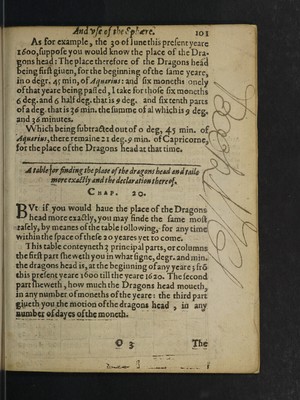 And vse of the Sphære. 101
As for example, the 30 of Iune this present yeare
1600, suppose you would know the place of the Dra-
gons head: The place therefore of the Dragons head
being first giuen, for the beginning of the same yeare,
in 0 degr. 45 min. of Aquarius: and six moneths onely
of that yeare being passed, I take for those six moneths
9 deg. and ½ half deg. that is 9 deg. and six tenth parts
of a deg. that is 36 min. the summe of al which is 9 deg.
and 36 minutes.
Which being subtracted out of 0 deg, 45 min. of
Aquarius, there remaine 21 deg. 9 min. of Capricorne,
for the place of the Dragons head at that time.
A table for finding the place of the dragons head and taile
more exactly and the declaration thereof.
CHAP. 20.
BVt if you would haue the place of the Dragons
head more exactly, you may finde the same most
safely, by meanes of the table following, for any time
within the space of these 20 yeares yet to come.
This table conteyneth 3 principal parts, or columns
the first part sheweth you in what signe, degr. and min.
the dragons head is, at the beginning of any yeare; frō
this present yeare 1600 till the yeare 1620. The second
part sheweth, how much the Dragons head moueth,
in any number of moneths of the yeare: the third part
giueth you the motion of the dragons head, in any
number of dayes of the moneth.
O 3 The